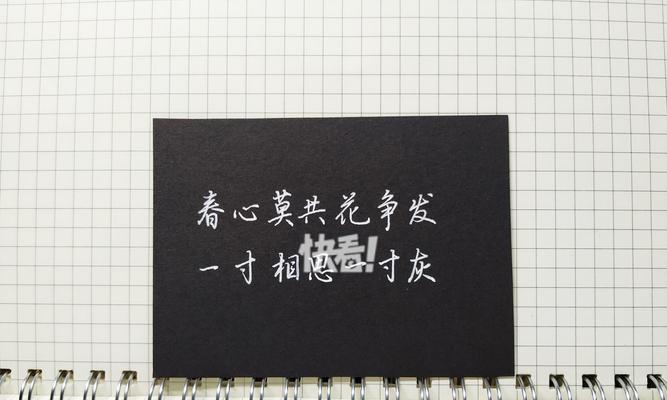 春心莫共花争发
快看!
一寸相思一寸灰